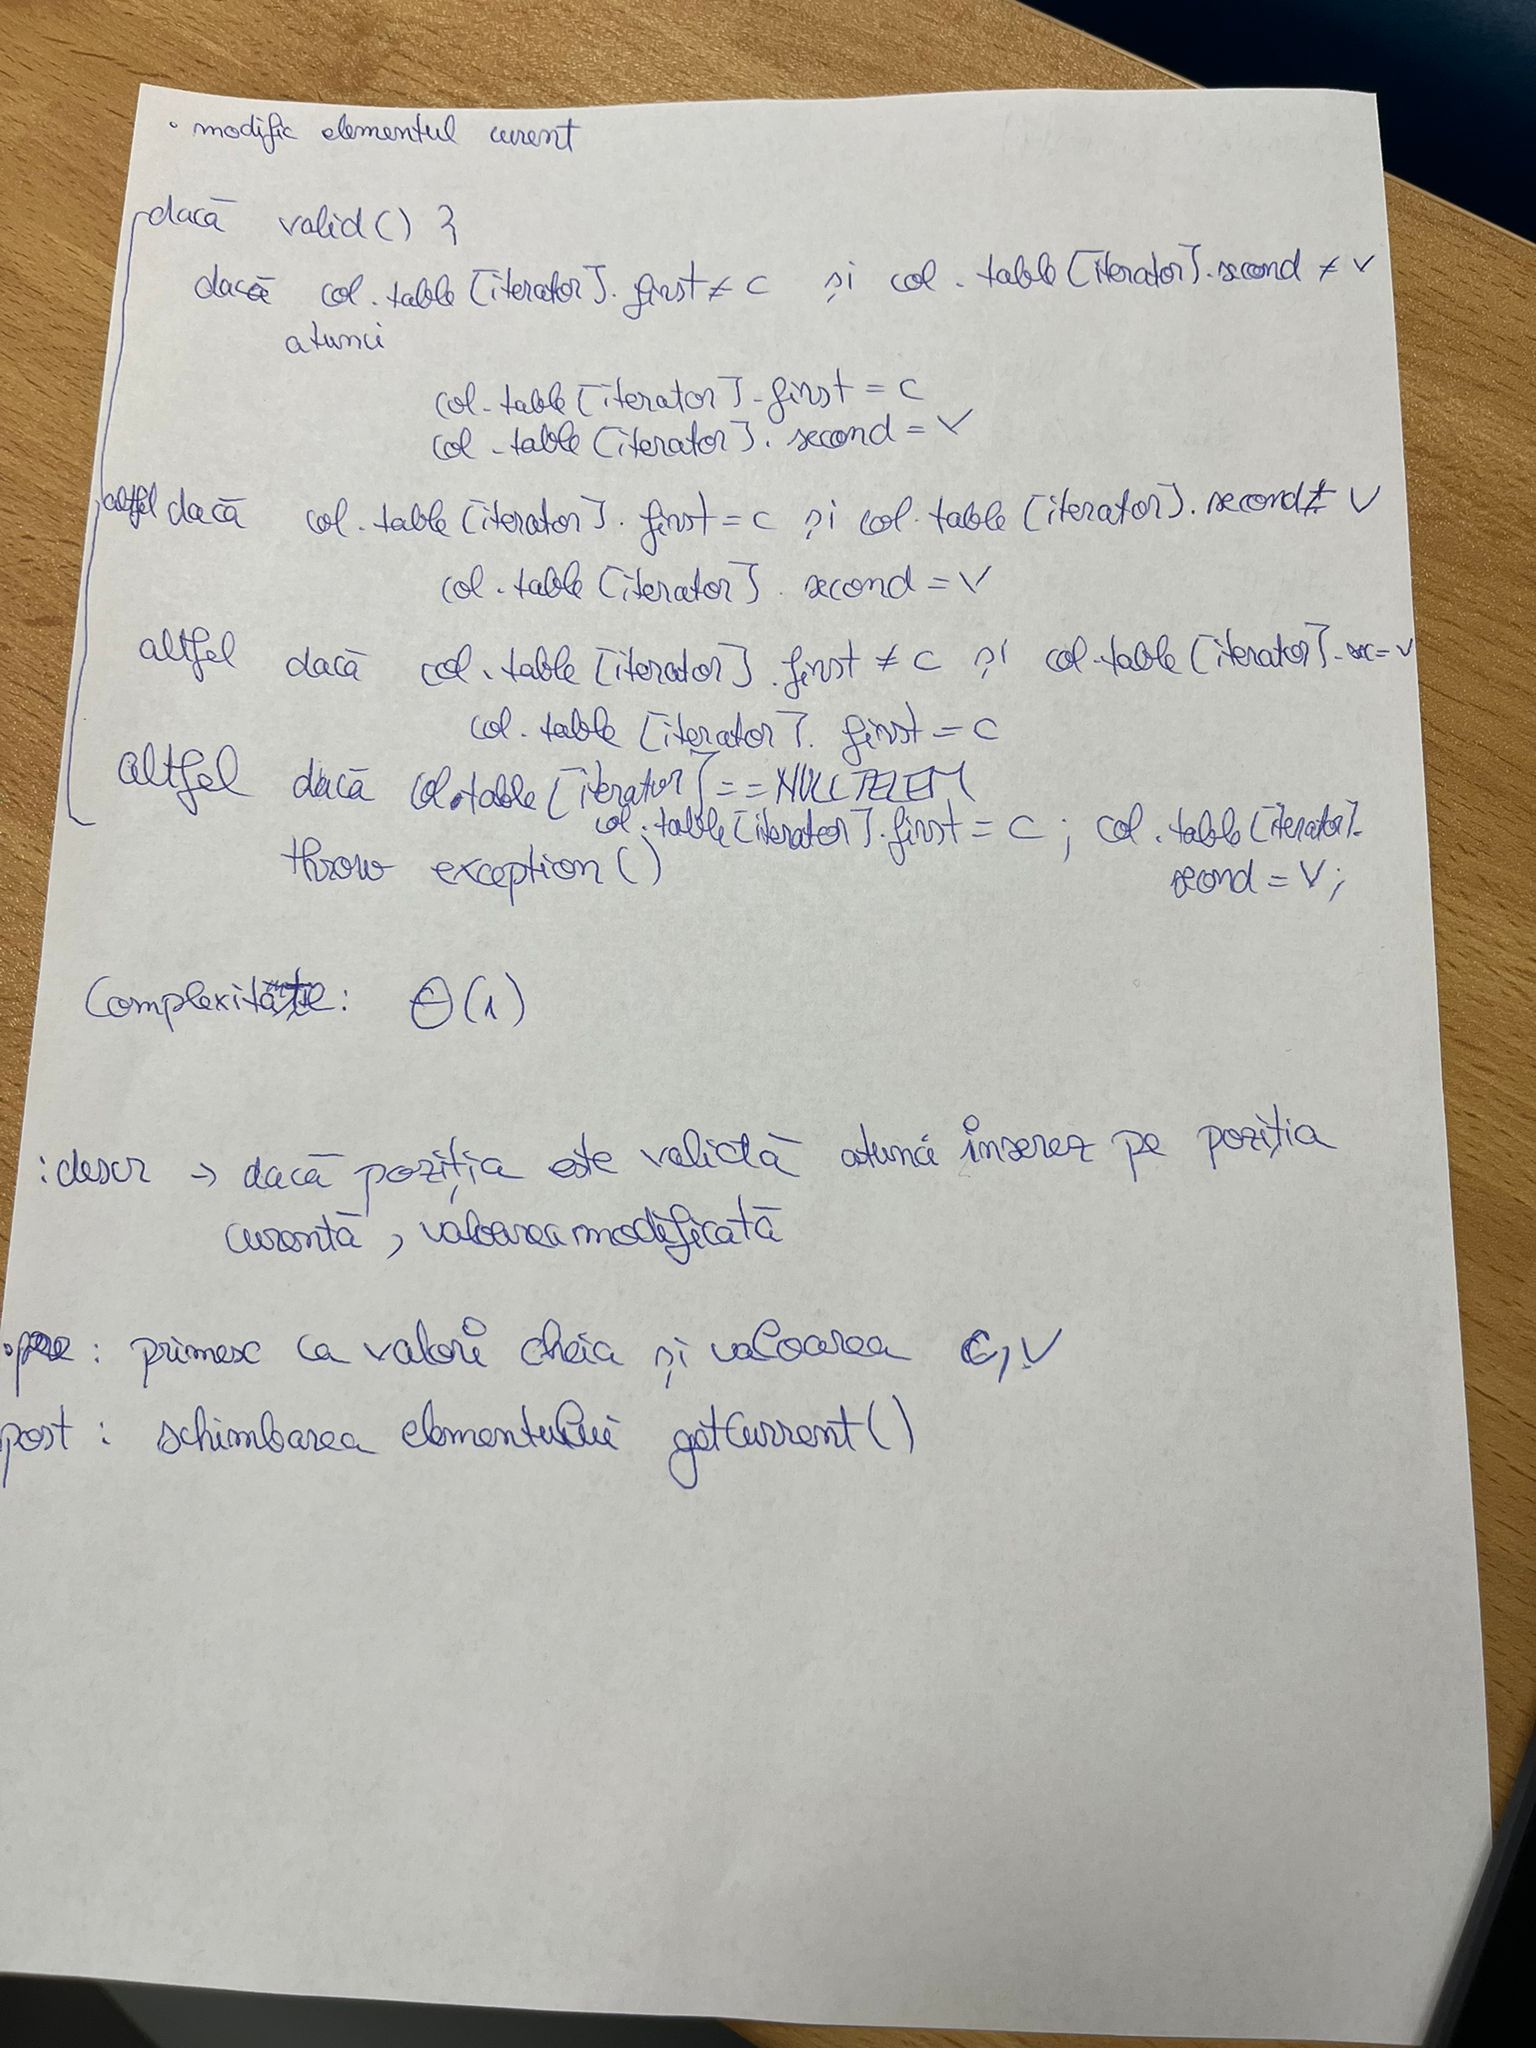 • modific elementul curent
dacă valid() {
dacă col.table[iterator].first ≠ c și col.table[iterator].second ≠ v
atunci
col.table[iterator].first = c
col.table[iterator].second = v
altfel dacă col.table[iterator].first = c și col.table[iterator].second ≠ v
col.table[iterator].second = v
altfel dacă col.table[iterator].first ≠ c și col.table[iterator].sec = v
col.table[iterator].first = c
altfel dacă col.table[iterator] == NULLTELEM
col.table[iterator].first = c; col.table[iterator].
throw exception() second = v;
Complexitate: Θ(1)
:descr → dacă poziția este validă atunci inserez pe poziția
curentă, valoarea modificată
•pre: primesc ca valori cheia și valoarea c, v
post: schimbarea elementului getCurrent()